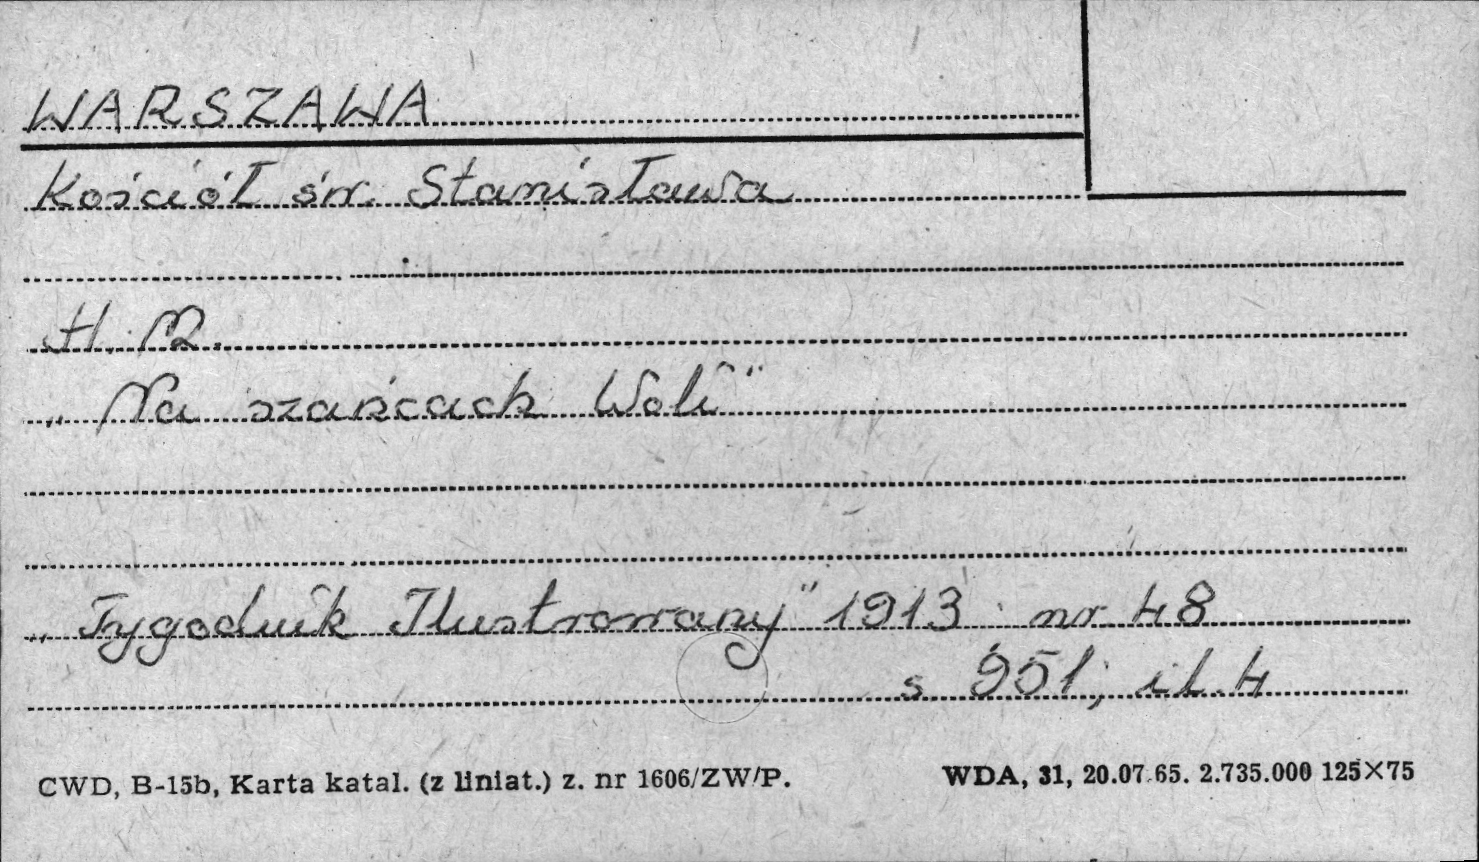 WARSZAWA
Kościół św. Stanisława
H. M.
„Na szańcach Woli"
„Tygodnik Ilustrowany" 1913 nr 48
s 951, il. 4
CWD, B-15b, Karta katal. (z liniat.) z. nr 1606/ZW/P.
WDA, 31, 20.07.65. 2.735.000 125×75